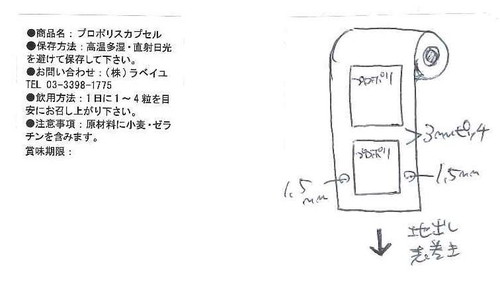 ●商品名：プロポリスカプセル
●保存方法：高温多湿・直射日光
を避けて保存して下さい。
●お問い合わせ：（株）ラベイユ
TEL 03-3398-1775
●飲用方法：1日に1～4粒を目
安にお召し上がり下さい。
●注意事項：原材料に小麦・ゼラ
チンを含みます。
賞味期限：
プロポリ
3mmピッチ
プロポリ
1.5mm
1.5mm
地出し
表巻き